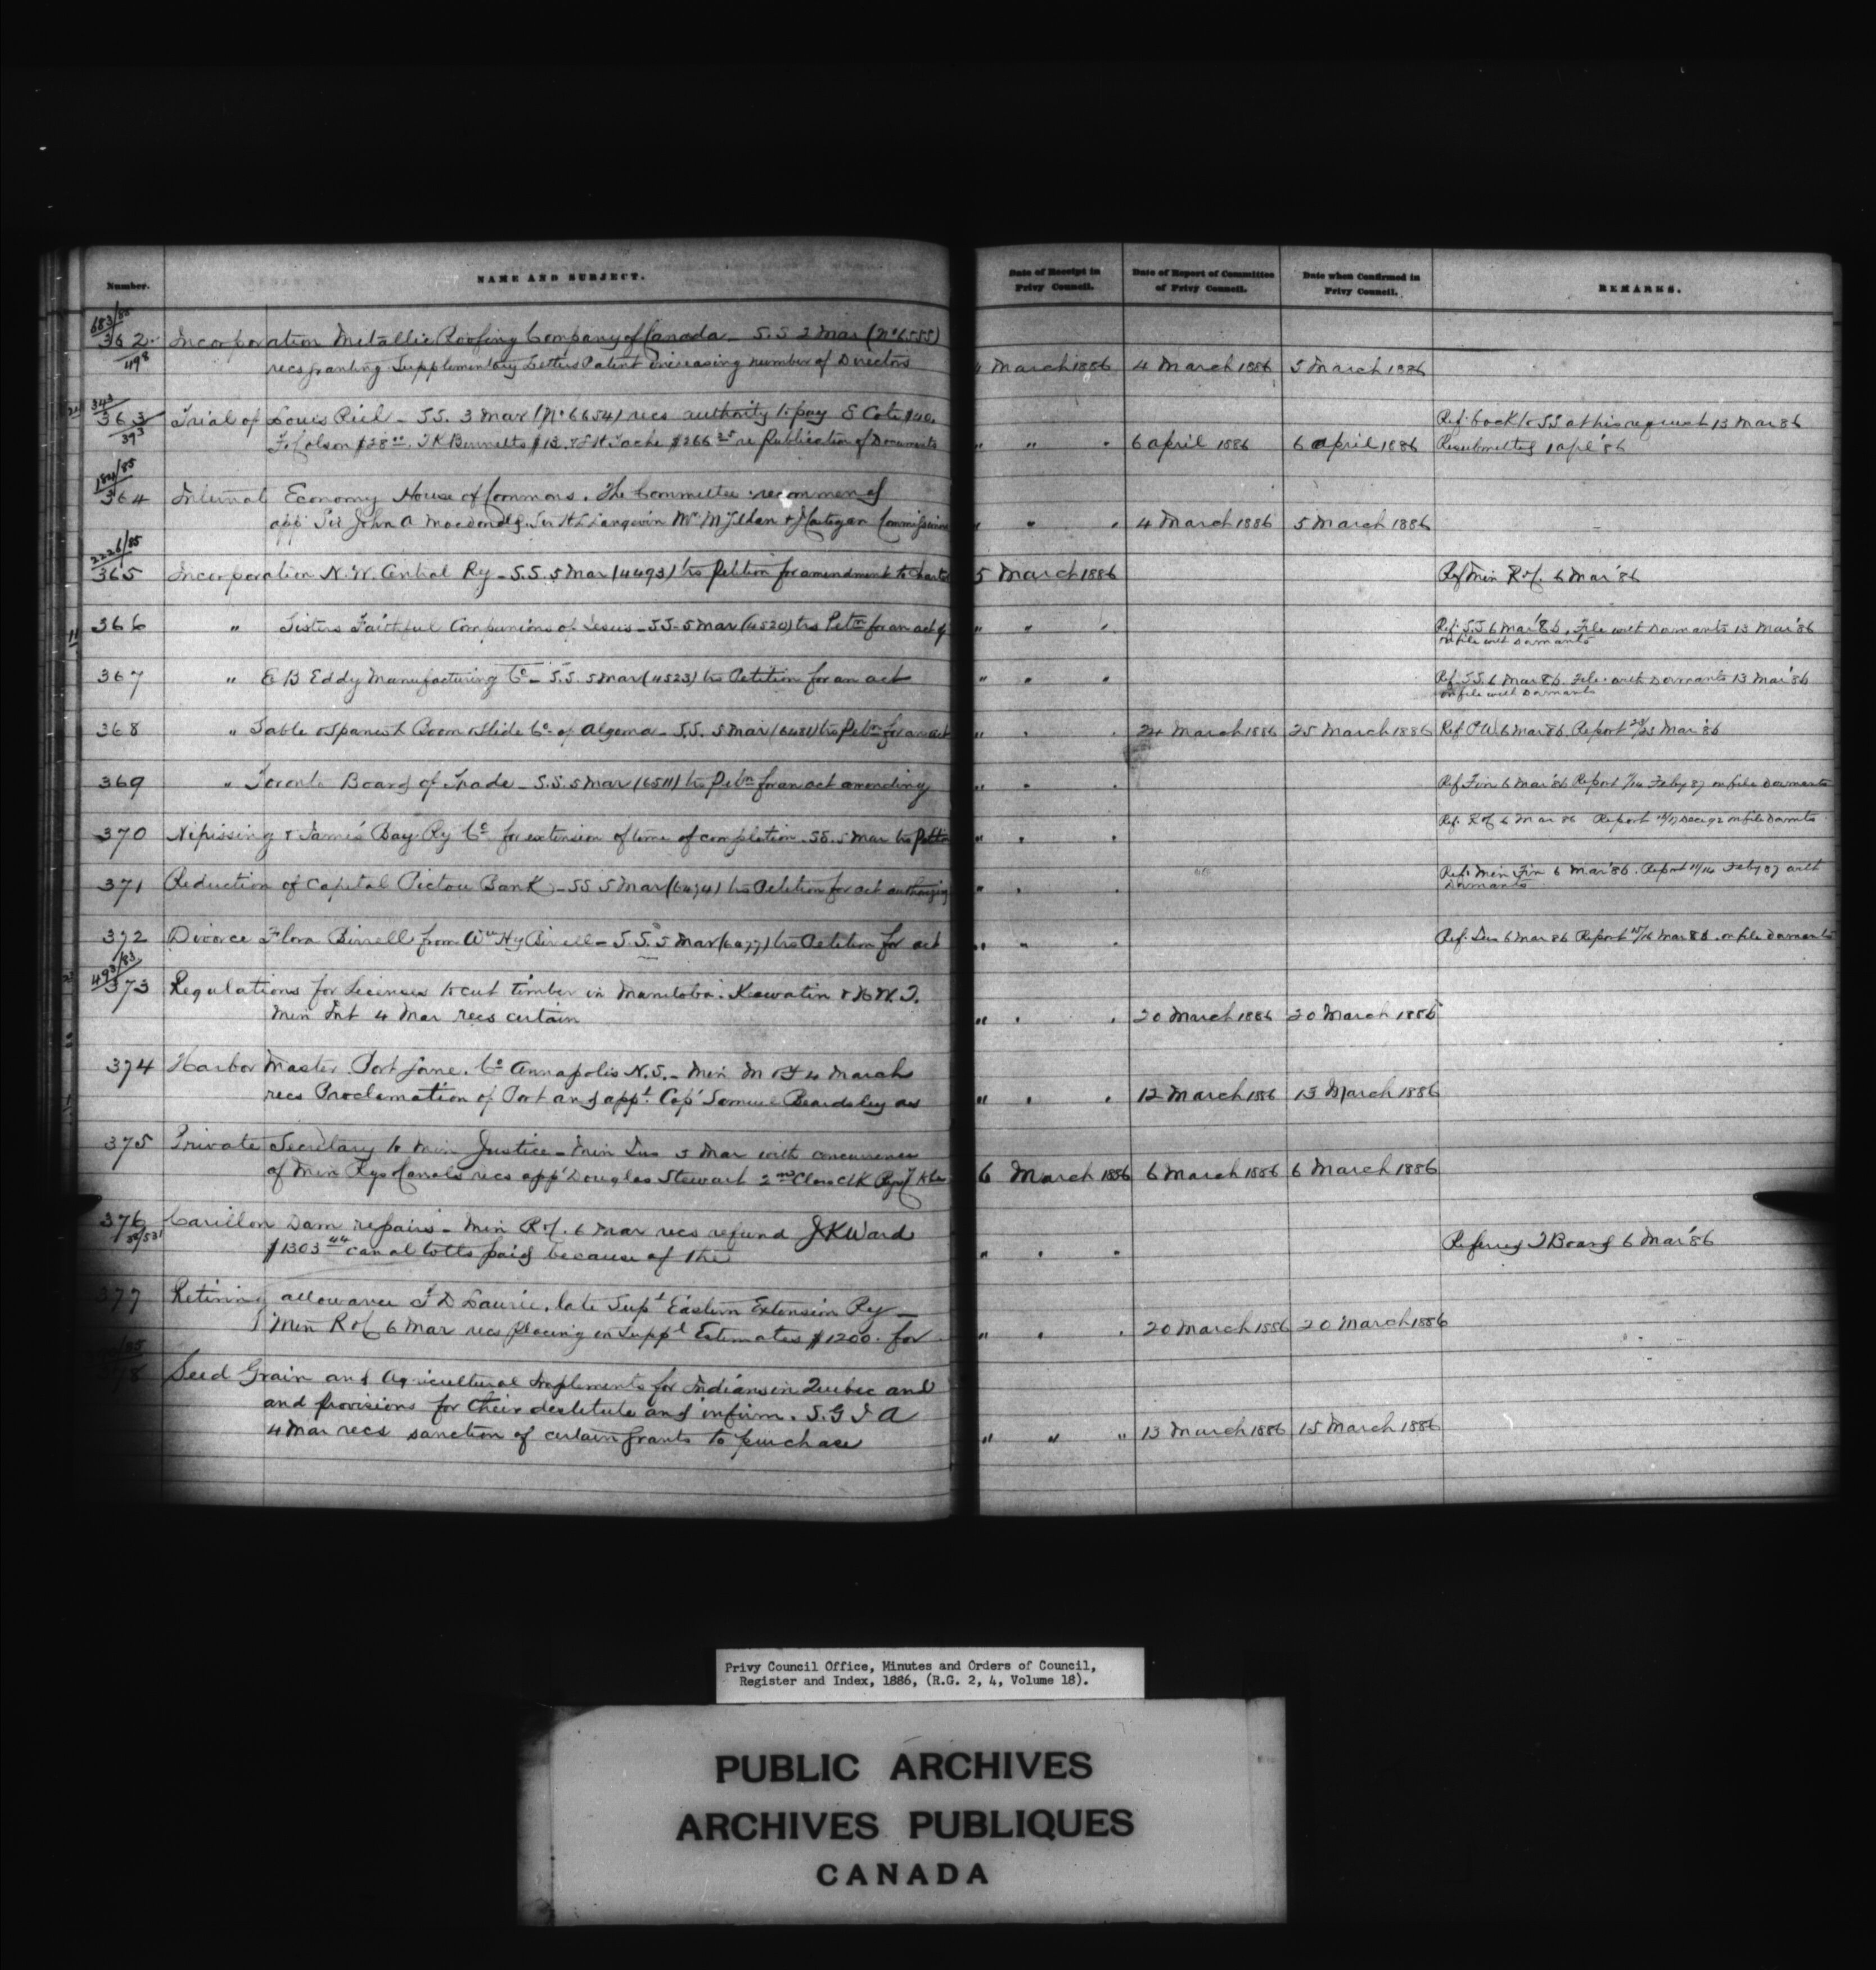 Number.
NAME AND SUBJECT.
Date of Receipt in Privy Council.
Date of Report of Committee of Privy Council.
Date when Confirmed in Privy Council.
REMARKS.
683/85
362 Incorporation Metallic Roofing Company of Canada _ S.S 2 Mar (No 6555)
498 recs granting Supplementary Letters Patent increasing number of Directors
4 March 1886 4 March 1886 5 March 1886
343
363 Trial of Louis Riel _ S.S. 3 Mar (No 6654) recs authority to pay S Coté $40.
393 $28 00. $13. Tache $266 25 re Publication of Documents
Ref. back to SS at his request 13 Mar 86
" " " 6 April 1886 6 April 1886 Resubmitted 1 Apl '86
184/85
364 Internal Economy House of Commons. The Committee recommend
app Sir John A Macdonald, Sir H L Langevin Mr & Costigan Commissioners
" " " 4 March 1886 5 March 1886
2226/85
365 Incorporation N.W. Central Ry _ S.S. 5 Mar (4493) trs Petition for amendment to Charter
5 March 1886 Ref Min R & C. 6 Mar '86
366 " Sisters Faithful Companions of Jesus _ S.S. 5 Mar (4520) trs Petn for an act of
" " " Ref. S.S 6 Mar '86. File with Dormants 13 Mar '86
on file with Dormants
367 " E B Eddy Manufacturing Co _ S.S. 5 Mar (4523) trs Petition for an act
" " " Ref. S.S. 6 Mar 86. File with Dormants 13 Mar '86
on file with Dormants
368 " Sable & Spanish Boom & Slide Co of Algoma _ S.S. 5 Mar (6481) trs Petn for an act
" " " 24 March 1886 25 March 1886 Ref P W 6 Mar 86. Report 23 Mar '86
369 " Toronto Board of Trade _ S.S. 5 Mar (6511) trs Petn for an act amending
" " " Ref Fin 6 Mar '86 Report Feby 87 on file Dormants
370 Nipissing & James Bay Ry Co for extension of time of completion. SS. 5 Mar trs Petn
" " " Ref. R & C 6 Mar 86 Report Dec 92 on file Dormants
371 Reduction of Capital Pictou Bank _ SS 5 Mar (6494) trs Petition for act authorizing
" " " Ref. Min Fin 6 Mar '86. Report 11/14 Feby 87 with
Dormants
372 Divorce Flora Birrell from Wm Hy Birrell _ S.S. 5 Mar trs Petition for act
" " " Ref. Jus 6 Mar 86 Report 15/16 Mar 86. on file Dormants
493/83
373 Regulations for Licenses to cut timber in Manitoba. Keewatin & N.W.T.
Min Int 4 Mar recs certain
" " " 20 March 1886 20 March 1886
374 Harbor Master Port Lorne. Co Annapolis N.S. _ Min M & F 4 March
recs Proclamation of Port and appt. Capt Samuel Beardsley as
" " " 12 March 1886 13 March 1886
375 Private Secretary to Min Justice _ Min Jus 5 Mar with concurrence
of Min Rys & Canals recs appt Douglas Stewart 2nd Class Clk
6 March 1886 6 March 1886 6 March 1886
376 Carillon Dam repairs _ Min R & C. 6 Mar recs refund J K Ward
$1303 44 canal tolls paid because of the
" " " Referred T Board 6 Mar '86
377 Retiring allowance J D Laurie. late Supt Eastern Extension Ry _
Min R & C 6 Mar recs placing in Suppl Estimates $1200. for
" " " 20 March 1886 20 March 1886
378 Seed Grain and Agricultural Implements for Indians in Quebec and
and provisions for their destitute and infirm. S.G I A
4 Mar recs sanction of certain grants to purchase
" " " 13 March 1886 15 March 1886
Privy Council Office, Minutes and Orders of Council,
Register and Index, 1886, (R.G. 2, 4, Volume 18).
PUBLIC ARCHIVES
ARCHIVES PUBLIQUES
CANADA